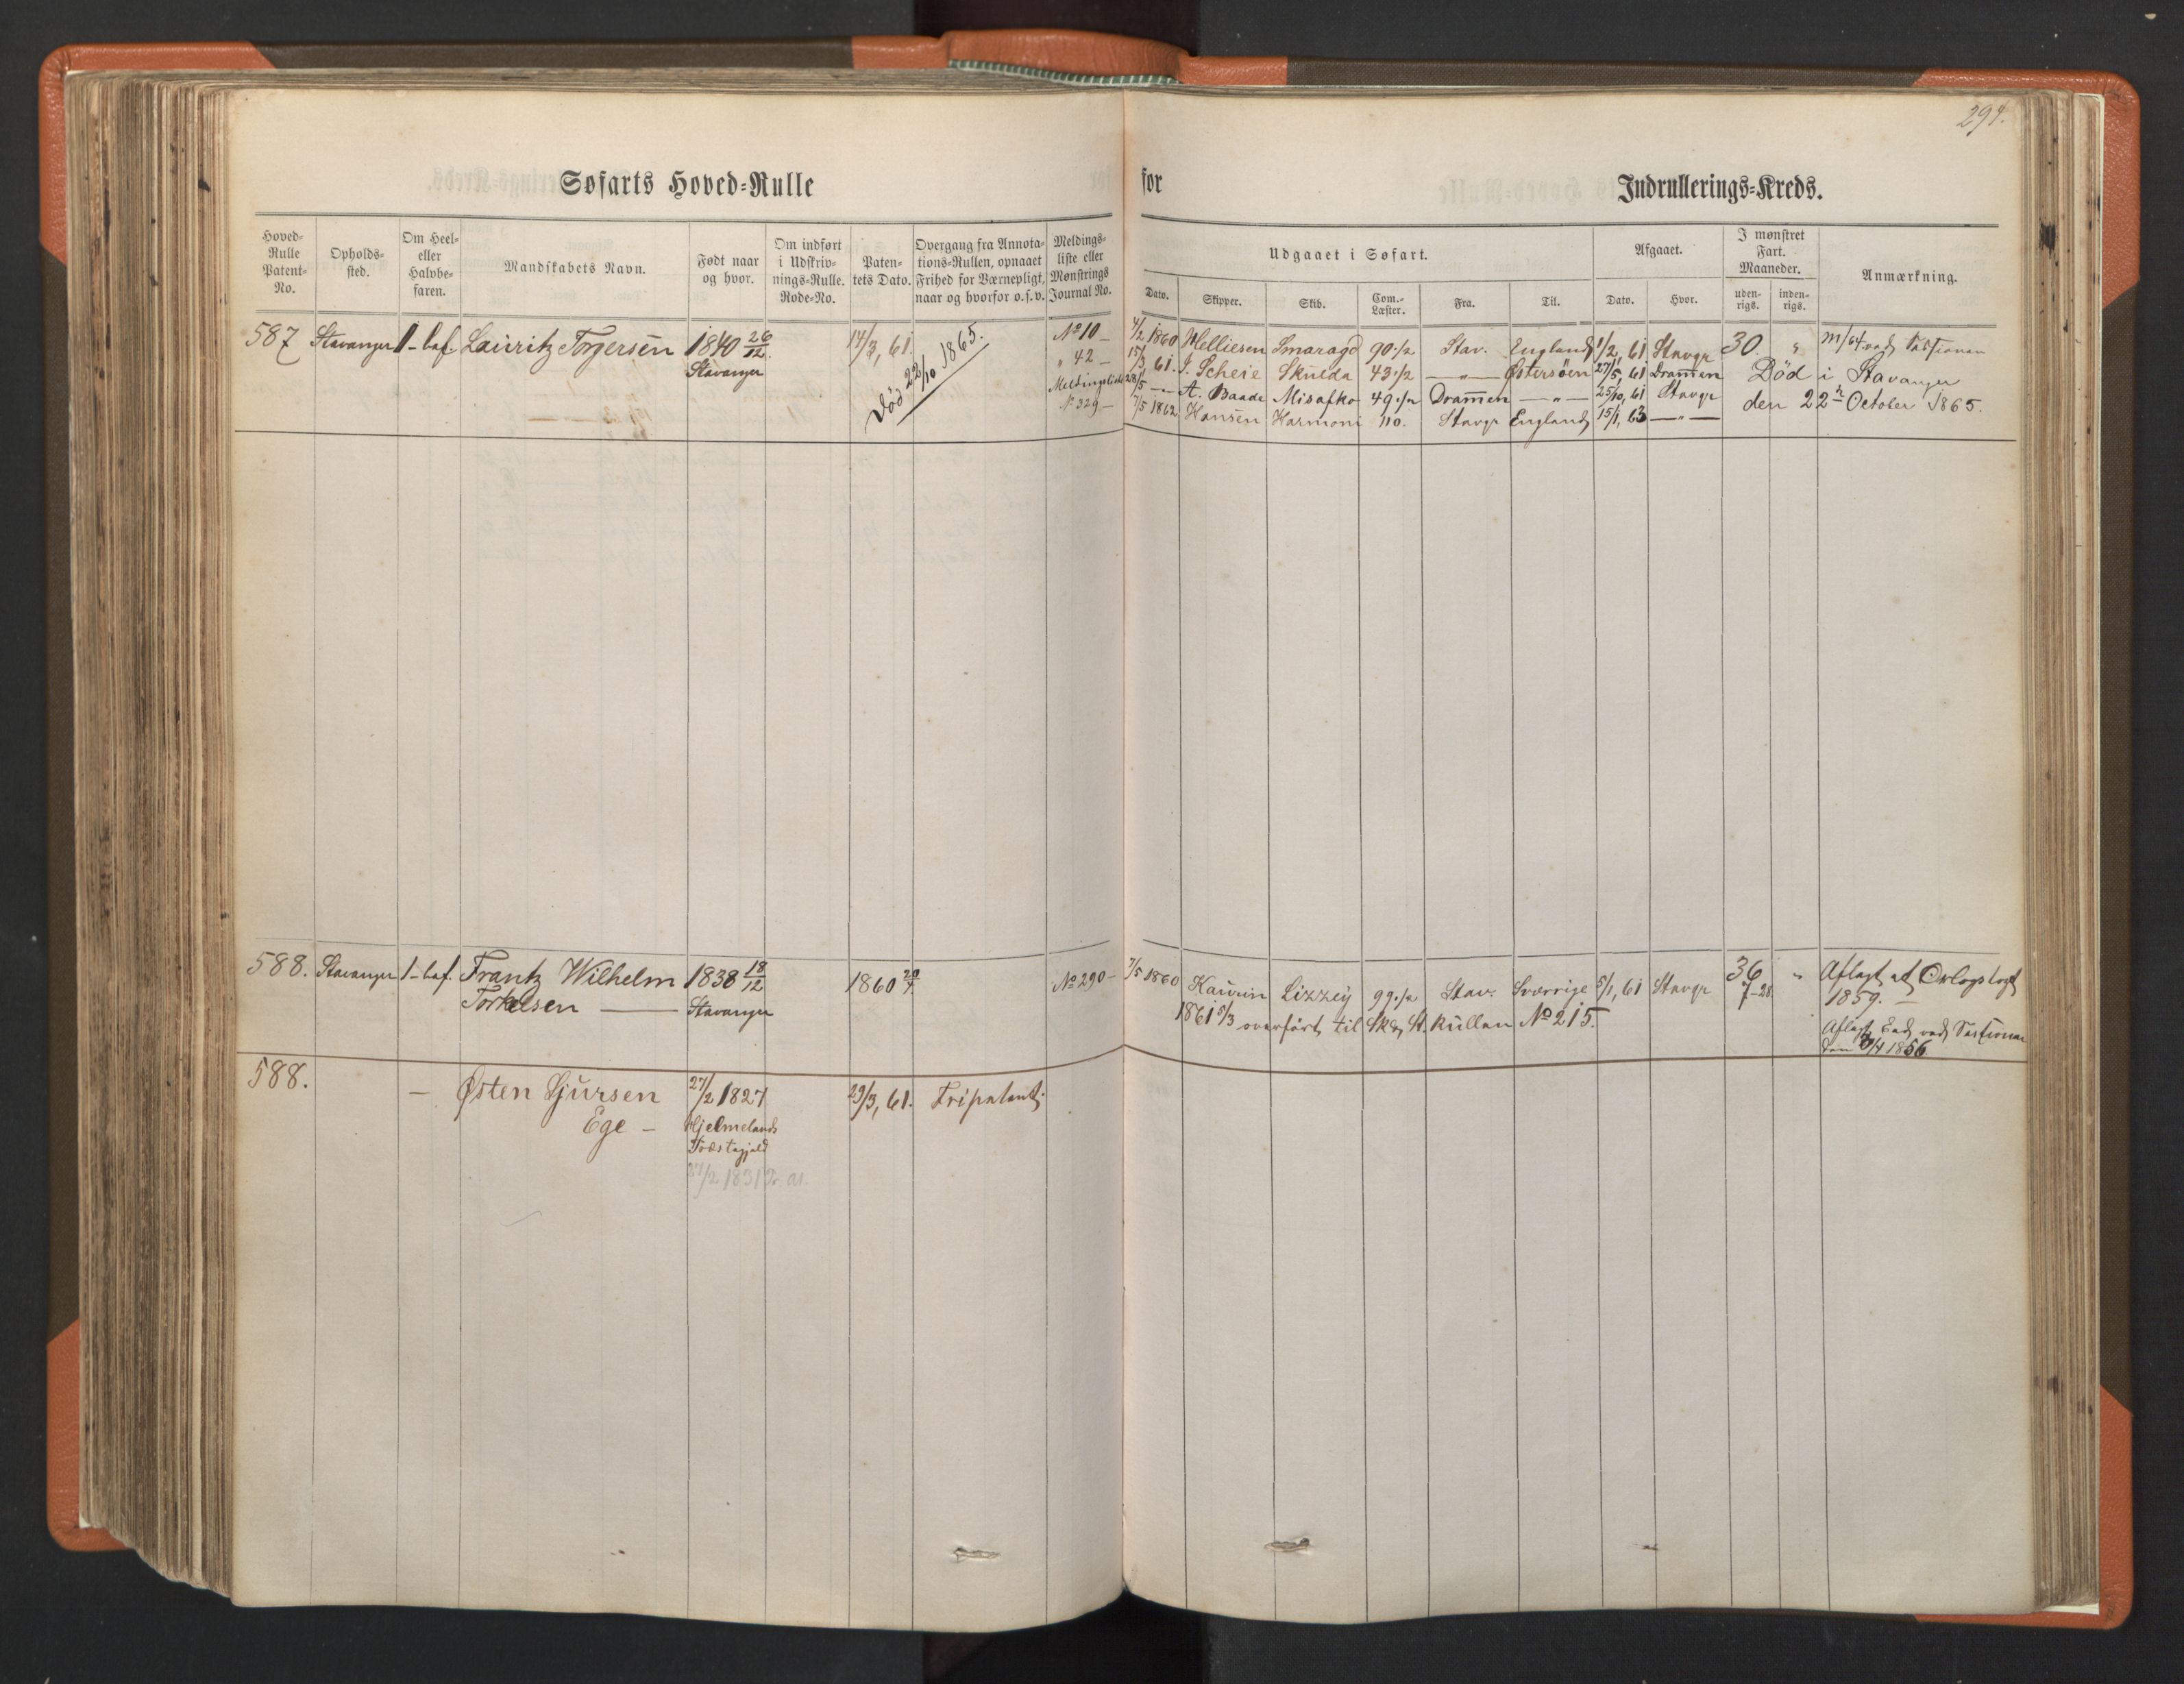 294.
Søfarts Hoved-Rulle for Indrullerings-Kreds.
Hoved-Rulle Patent-No.
Opholds-sted.
Om Heel- eller Halvbe-faren.
Mandskabets Navn.
Født naar og hvor.
Om indført i Udskriv-nings-Rulle. Rode-No.
Paten-tets Dato.
Overgang fra Annota-tions-Rullen, opnaaet Frihed for Værnepligt, naar og hvorfor o.s.v.
Meldings-liste eller Mønstrings Journal No.
Udgaaet i Søfart.
Dato. Skipper. Skib. Com.-Læster. Fra. Til.
Afgaaet.
Dato. Hvor.
I mønstret Fart. Maaneder.
uden-rigs. inden-rigs.
Anmærkning.
587 Stavanger 1-baf. Lauritz Torgersen 1840 26/12. 14/3, 61. No 10 — 4/2 1860 Helliesen Smaragd 90 1/2 Stav. England 1/2, 61 Stavgr 30. " m/64 ved
Stavanger
Død 22/10 1865.
" 42 — 15/3, 61. J. Scheie Skulda 43 1/2 —"— Østersøen 27/5, 61 Drammen Død i Stavanger
Meldingsliste 28/5 —"— A. Baade Misafko 49 1/2 Drammen —"— 25/10, 61 Stavgr den 22n October 1865.
No 329 — 7/5 1862 Hansen Harmoni 110. Stavgr England 15/1, 63 —"—
588. Stavanger 1-baf. Frantz Wilhelm 1838 18/12 1860 20/7. No 290 — 7/5 1860 Kaurin Lizzey 99 1/2 Stav. Sverrige 5/1, 61 Stavgr 36 " Aflagt et Orlogstogt
Torkelsen — Stavanger 7-28. 1859. —
1861 5/3 overført til Skd. St. Rullen No 215.
Aflagt Eed ved Sessionen
den 1856
588. — Østen Sjursen 27/2 1827 23/3, 61. Fripatent.
Ege — Hjelmelands
Præstegjeld
27/2 1831